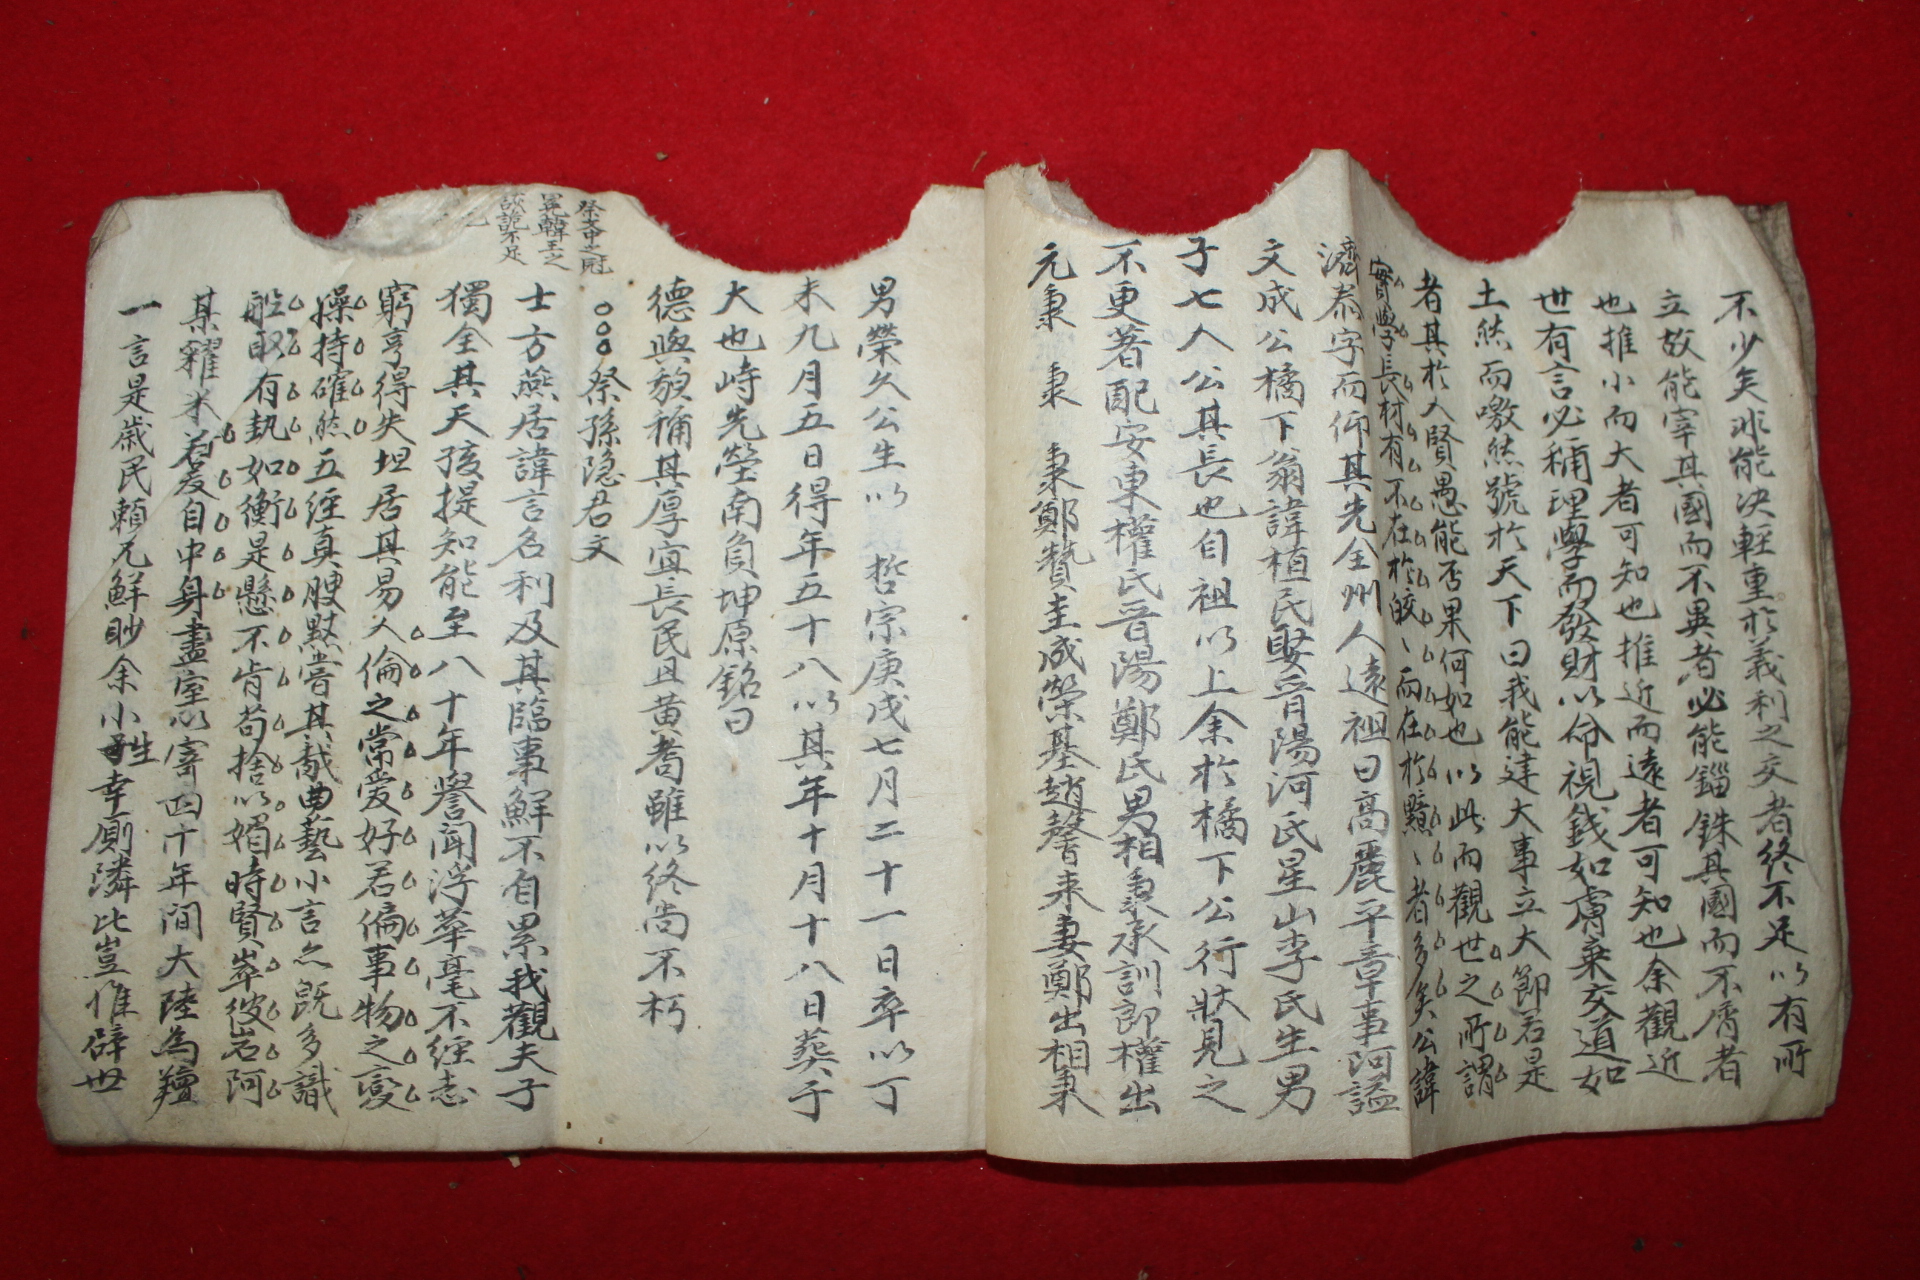 不少矣非能決輕重於義利之交者終不足以有所
立故能宰其國而不異者必能錙銖其國而不屑者
也推小而大者可知也推近而遠者可知也余觀近
世有言必稱理學而發財以命視錢如膚棄交道如
土然而噭然號於天下曰我能建大事立大節若是
者其於人賢愚能否果何如也以此而觀世之所謂
實學長材有不在於皎、而在於黯、者多矣公諱
濟泰字而仰其先全州人遠祖曰高麗平章事阿諡
文成公橘下翁諱植民娶晋陽河氏星山李氏生男
子七人公其長也自祖以上余於橘下公行狀見之
不更著配安東權氏晋陽鄭氏男相秉承訓郎權出
元秉 秉 秉鄭贊圭成榮基趙馨來妻鄭出相秉
男榮久公生以 哲宗庚戌七月二十一日卒以丁
未九月五日得年五十八以其年十月十八日葬于
大也峙先塋南負坤原銘曰
德與貌稱其厚宜長民且黄耇雖以終尚不朽
祭孫隐君文
祭文中之冠
冕韓王之
諔詭不足
士方燕居諱言名利及其臨事鮮不自累我觀夫子
獨全其天孩提知能至八十年譽聞浮華毫不經志
窮亨得失坦居其易人倫之常愛好若偏事物之變
操持確然五經真腴黙嘗其胾曲藝小言亦既多識
般取有執如衡是懸不肯苟捨以媚時賢崒彼岩阿
某糶米若爰自中身盡室以寄四十年間大陸為羶
一言是箴民賴尤鮮眇余小生幸厠隣比豈惟辟世